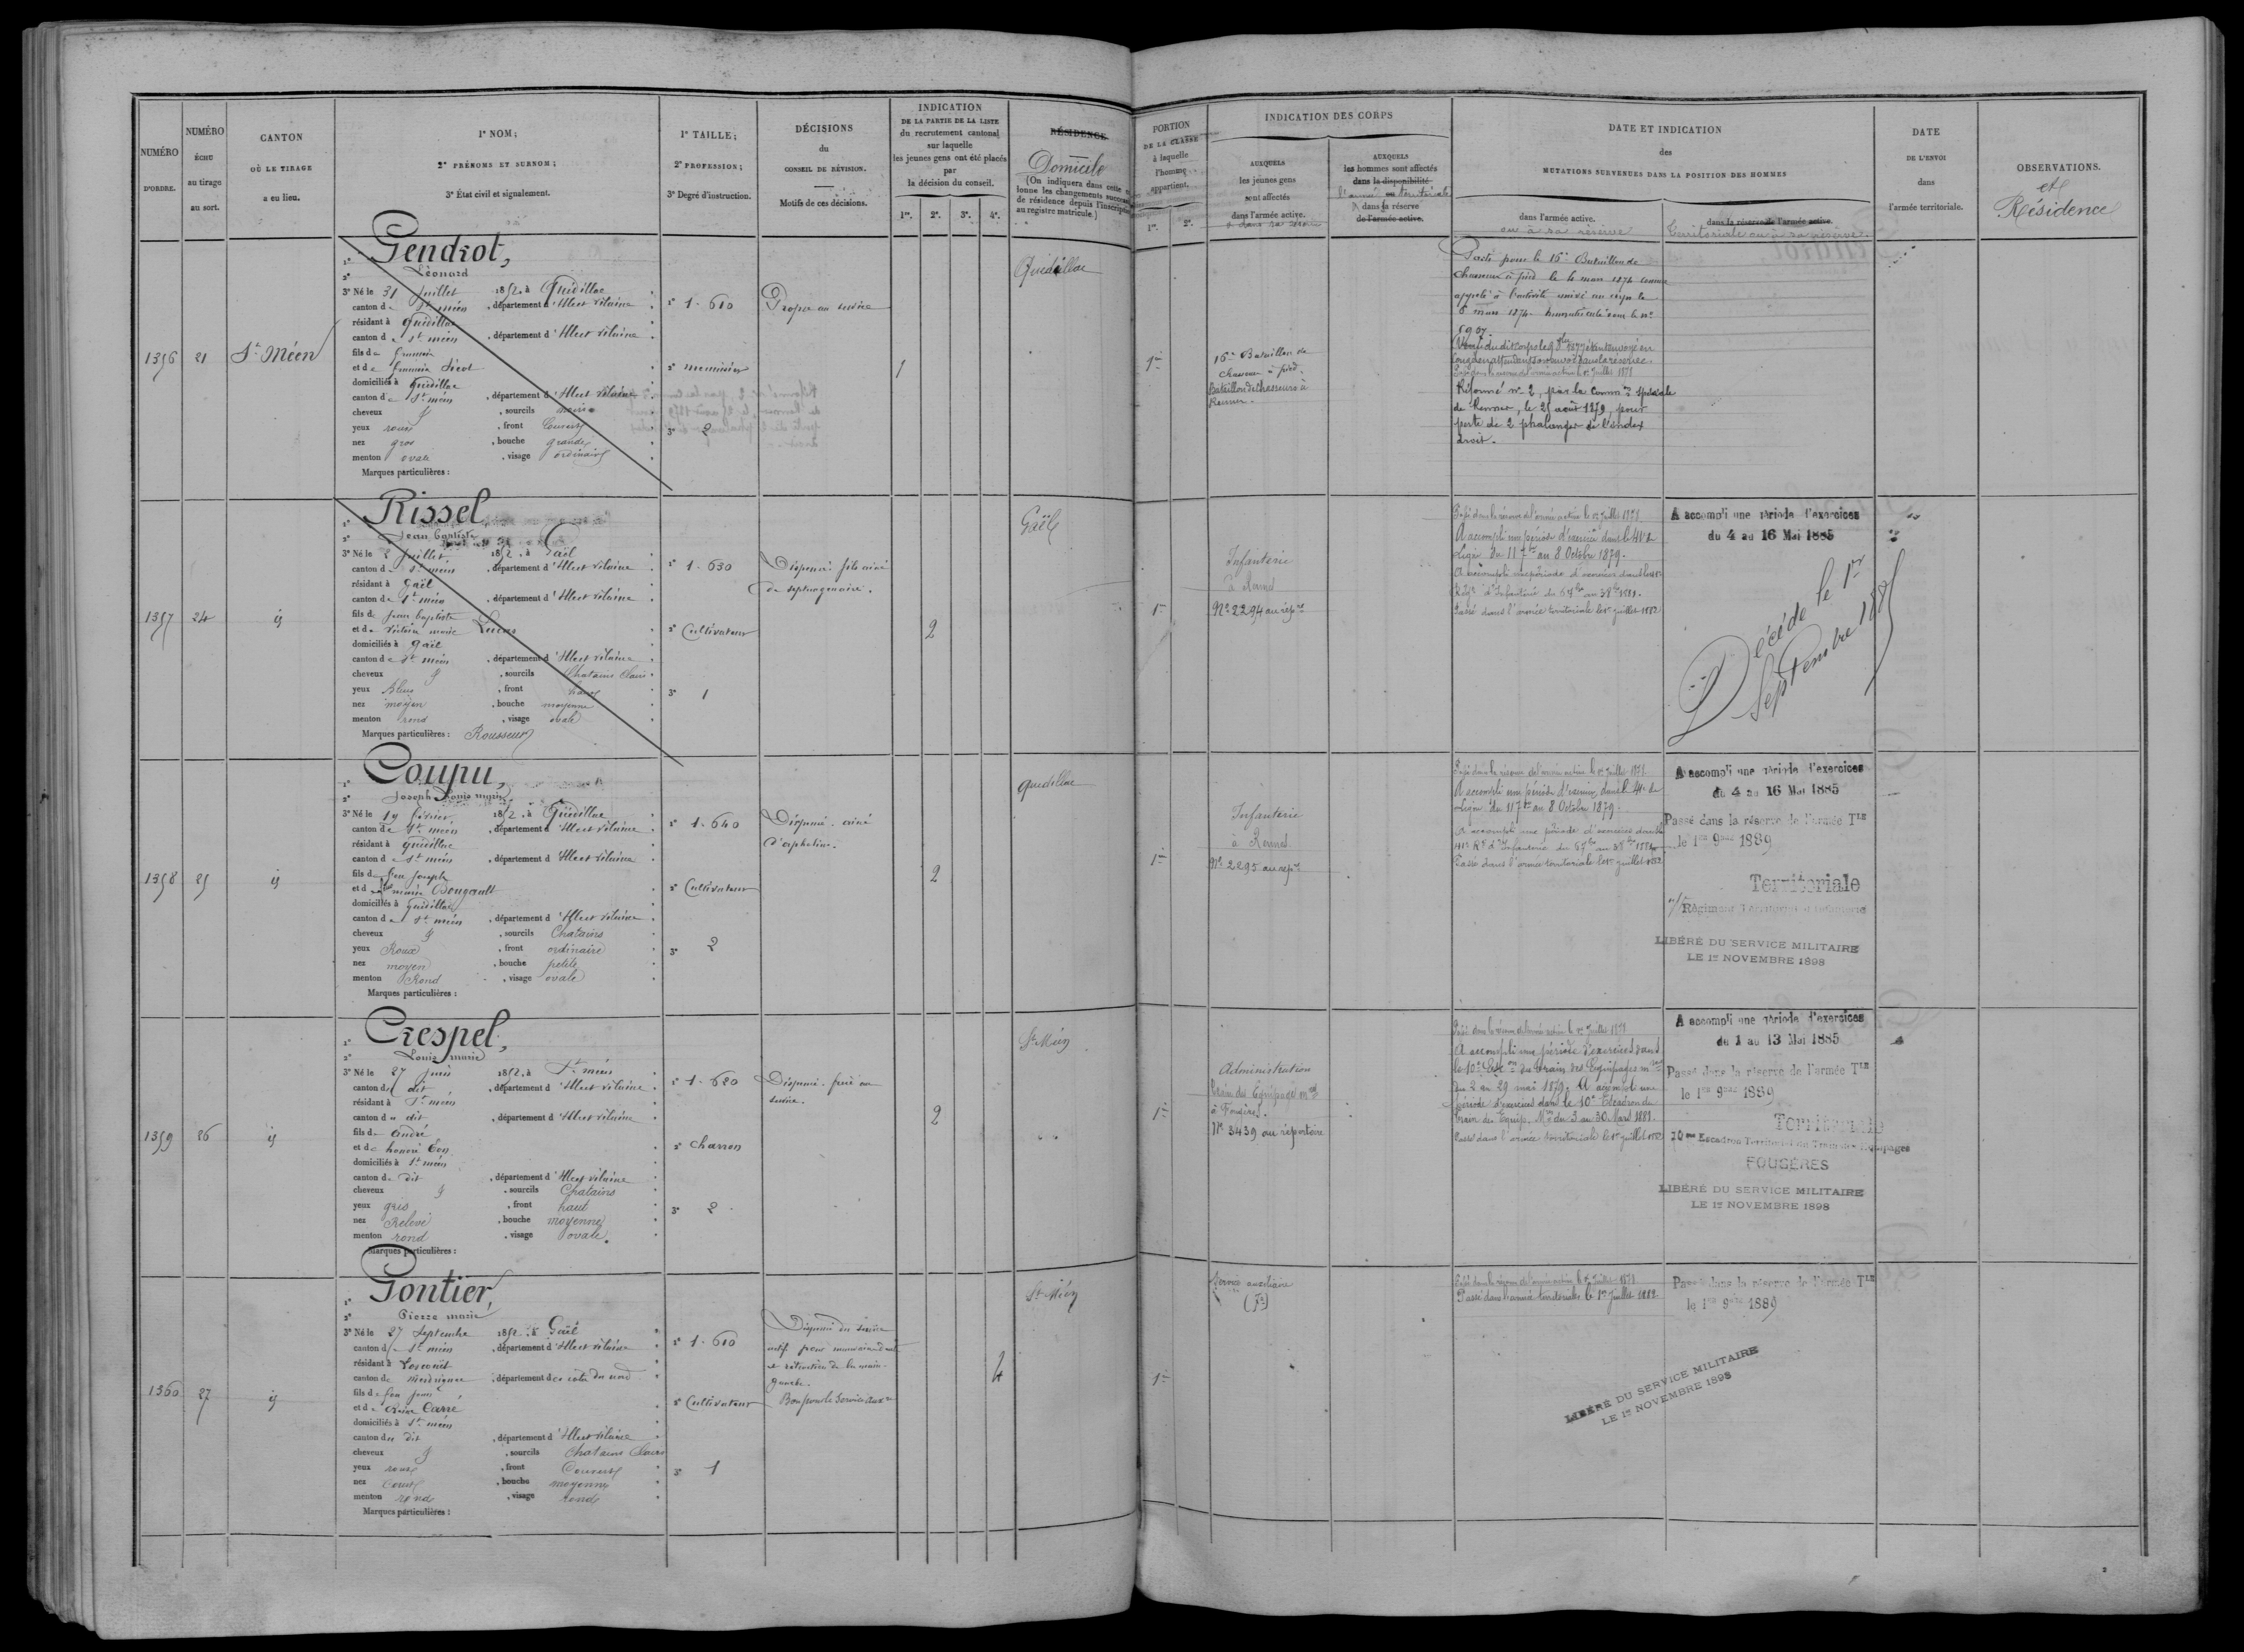 NUMÉRO
D'ORDRE.
NUMÉRO
ÉCHU
au tirage
au sort.
CANTON
OÙ LE TIRAGE
a eu lieu.
1° NOM;
2° PRÉNOMS ET SURNOM;
3° État civil et signalement.
1° TAILLE;
2° PROFESSION;
3° Degré d'instruction.
DÉCISIONS
du
CONSEIL DE RÉVISION.
Motifs de ces décisions.
INDICATION
DE LA PARTIE DE LA LISTE
du recrutement cantonal
sur laquelle
les jeunes gens ont été placés
par
la décision du conseil.
1re. 2e. 3e. 4e.
RÉSIDENCE
Domicile
(On indiquera dans cette
lonne les changements
de résidence depuis l'inscription
au registre matricule.)
PORTION
DE LA CLASSE
à laquelle
l'homme
appartient.
1re. 2e.
INDICATION DES CORPS
AUXQUELS
les jeunes gens
sont affectés
dans l'armée active.
AUXQUELS
les hommes sont affectés
dans la disponibilité
l'armée ou territoriale
dans la réserve
de l'armée active.
DATE ET INDICATION
des
MUTATIONS SURVENUES DANS LA POSITION DES HOMMES
dans l'armée active.
ou à sa réserve
dans la réserve de l'armée active.
Territoriale ou à sa réserve.
DATE
DE L'ENVOI
dans
l'armée territoriale.
OBSERVATIONS.
et
Résidence
1356 21 St Méen
1° Gendrot,
2° Léonard
3° Né le 31 Juillet 1852, à Quédillac
canton de St méen, département d'Illeet vilaine
résidant à Quédillac
canton de St méen, département d'Illeet vilaine
fils de
et de
domiciliés à Quédillac
canton de St méen, département d'Illeet vilaine
cheveux & sourcils noirs
yeux roux, front Couvert
nez gros, bouche grande
menton ovale, visage ordinaire
Marques particulières :
1° 1.610
2° menuisier
3° 2
Propre au service
1
Quédillac
1re
16e Bataillon de
chasseurs à pied.
Bataillon de Chasseurs à
Rennes.
Parti pour le 16e Bataillon de
chasseurs à pied le 4 mars 1874 comme
appelé à l'activité arrivé au corps le
6 mars 1874 Immatriculé sous le no
Passé dans la réserve de l'armée active le 1er Juillet 1878
Réformé no 2, par la Common spéciale
de Rennes, le 25 août 1879, pour
perte de 2 phalanges de l'index
droit.
1357 24 id
1° Rissel
2° Jean baptiste
3° Né le 2 Juillet 1852, à Gaël
canton de St méen, département d'Illeet vilaine
résidant à Gaël
canton de St méen, département d'Illeet vilaine
fils de Jean baptiste
et de Victoire marie Lucas
domiciliés à Gaël
canton de St méen, département d'Illeet vilaine
cheveux & sourcils Chatains Clairs
yeux Bleus, front haut
nez moyen, bouche moyenne
menton rond, visage ovale
Marques particulières : Rousseurs
1° 1.630
2° Cultivateur
3° 1
Dispensé. fils ainé
de septuagénaire.
2
Gaël
1re
Infanterie
à Rennes
No 2294 au rép.re
Passé dans la réserve de l'armée active le 1er Juillet 1878
A accompli une période d'exercice dans le 41e de
Ligne du 11 7bre au 8 Octobre 1879.
Passé dans l'armée territoriale le 1er juillet 1882
A accompli une période d'exercices
du 4 au 16 Mai 1885
Décédé le 1er
Septembre 1885
1358 25 id
1° Coupu,
2° Joseph Louis marie
3° Né le 19 février 1852, à Quédillac
canton de St méen, département d'Illeet vilaine
résidant à Quédillac
canton de St méen, département d'Illeet vilaine
fils de feu Joseph
et de marie Bougault
domiciliés à Quédillac
canton de St méen, département d'Illeet vilaine
cheveux & sourcils Chatains
yeux Roux, front ordinaire
nez moyen, bouche petite
menton Rond, visage ovale
Marques particulières :
1° 1.640
2° Cultivateur
3° 2
Dispensé. ainé
d'orphelins.
2
Quédillac
1re
Infanterie
à Rennes
No 2295 au rép.re
Passé dans la réserve de l'armée active le 1er Juillet 1878
A accompli une période d'exercice dans le 41e de
Ligne du 11 7bre au 8 Octobre 1879.
Passé dans l'armée territoriale le 1er juillet 1882
A accompli une période d'exercices
du 4 au 16 Mai 1885
Passé dans la réserve de l'armée Tle
le 1er 9bre 1889
Territoriale
Régiment Territorial d'Infanterie
LIBÉRÉ DU SERVICE MILITAIRE
LE 1er NOVEMBRE 1898
1359 26 id
1° Crespel,
2° Louis marie
3° Né le 27 Juin 1852, à St méen
canton du dit, département d'Illeet vilaine
résidant à St méen
canton du dit, département d'Illeet vilaine
fils de André
et de
domiciliés à St méen
canton du dit, département d'Illeet vilaine
cheveux & sourcils Chatains
yeux gris, front haut
nez Relevé, bouche moyenne
menton rond, visage ovale.
Marques particulières :
1° 1.620
2° Charron
3° 2
Dispensé. frère au
service.
2
St Méen
1re
Administration
Train des Equipages mres
à Fougères.
No 3439 au répertoire
Passé dans la réserve de l'armée active le 1er Juillet 1878
A accompli une période d'exercices dans
le 10e Escon du Train des Equipages mres
du 2 au 29 mai 1879. A accompli une
période d'exercices dans le 10e Escadron du
train des Equip. Mres du 3 au 30 Mars 1881.
Passé dans l'armée territoriale le 1er juillet 1882
A accompli une période d'exercices
du 1 au 13 Mai 1885
Passé dans la réserve de l'armée Tle
le 1er 9bre 1889
Territoriale
10me Escadron Territorial du Train des Equipages
FOUGÈRES
LIBÉRÉ DU SERVICE MILITAIRE
LE 1er NOVEMBRE 1898
1360 27 id
1° Pontier,
2° Pierre marie
3° Né le 27 Septembre 1852, à Gaël
canton de St méen, département d'Illeet vilaine
résidant à Loscouët
canton de Merdrignac, département des cotes du nord
fils de feu
et de Reine Carré
domiciliés à St méen
canton du dit, département d'Illeet vilaine
cheveux & sourcils Chatains Clairs
yeux roux, front Couvert
nez Court, bouche moyenne
menton rond, visage rond
Marques particulières :
1° 1.610
2° Cultivateur
3° 1
Dispensé du service
actif pour
et rétraction de la main
gauche.
Bon pour le Service auxre
4
St Méen
1re
Service auxiliaire
Passé dans la réserve de l'armée active le 1er Juillet 1878
Passé dans l'armée territoriale le 1er Juillet 1882
Passé dans la réserve de l'armée Tle
le 1er 9bre 1889
LIBÉRÉ DU SERVICE MILITAIRE
LE 1er NOVEMBRE 1898